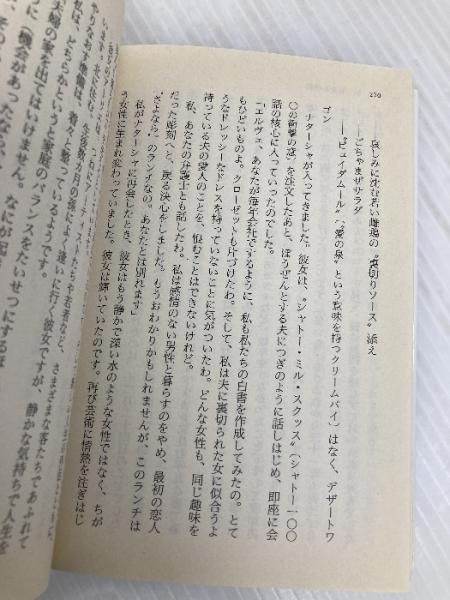 270
――哀しみに沈む若い雌鶏の〝裏切りソース〟添え
――ごちゃまぜサラダ
――〝ピュイダムール〟(〝愛の泉〟という意味を持つクリームパイ)はなく、デザートワ
ゴン
ナターシャが入ってきました。彼女は、〝シャトー・ミル・スクッス〟(シャトー一〇〇
〇の衝撃の意)を注文したあと、ぼうぜんとする夫につぎのように話しはじめ、即座に会
話の核心に入っていったのでした。
「エルヴェ、あなたが毎年会社でするように、私も私たちの白書を作成してみたの。とて
もひどいものよ。クローゼットも片づけたわ。そして、私は夫に裏切られた女に似合うよ
うなドレッシーなドレスを持っていないことに気がついたわ。どんな女性も、同じ趣味を
持っている夫の愛人のことを、恨むことはできないけれど。
あなたの弁護士とも話したわ。私は感情のない男性と暮らすのをやめ、最初の恋人
だった彫刻へと、戻る決心をしました。もうおわかりかもしれませんが、このランチは
〝さよなら〟のランチなの。あなたとは別れます」
私がナターシャに再会したとき、彼女はもう静かで深い水のような女性ではなく、ちが
う女性に生まれ変わっていました。彼女は輝いていたのです。再び芸術に情熱を注ぎはじ
さまざまな客たちであふれて
逢いに行く彼女ですが、静かな気持ちで人生を
やりなおす準備は、着々と整っているようです。
私は、どちらかというと家庭のバランスをたいせつにするほ
夫婦の家を出てはいけません。